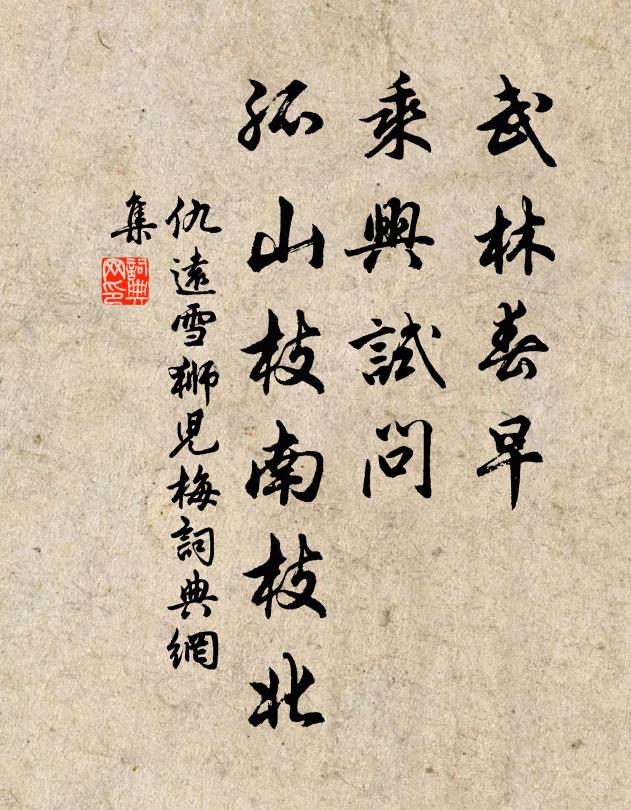 武林春早
乘興試問
孤山枝南枝北
仇遠雪獅兒梅詞典網
集
詞典
网印